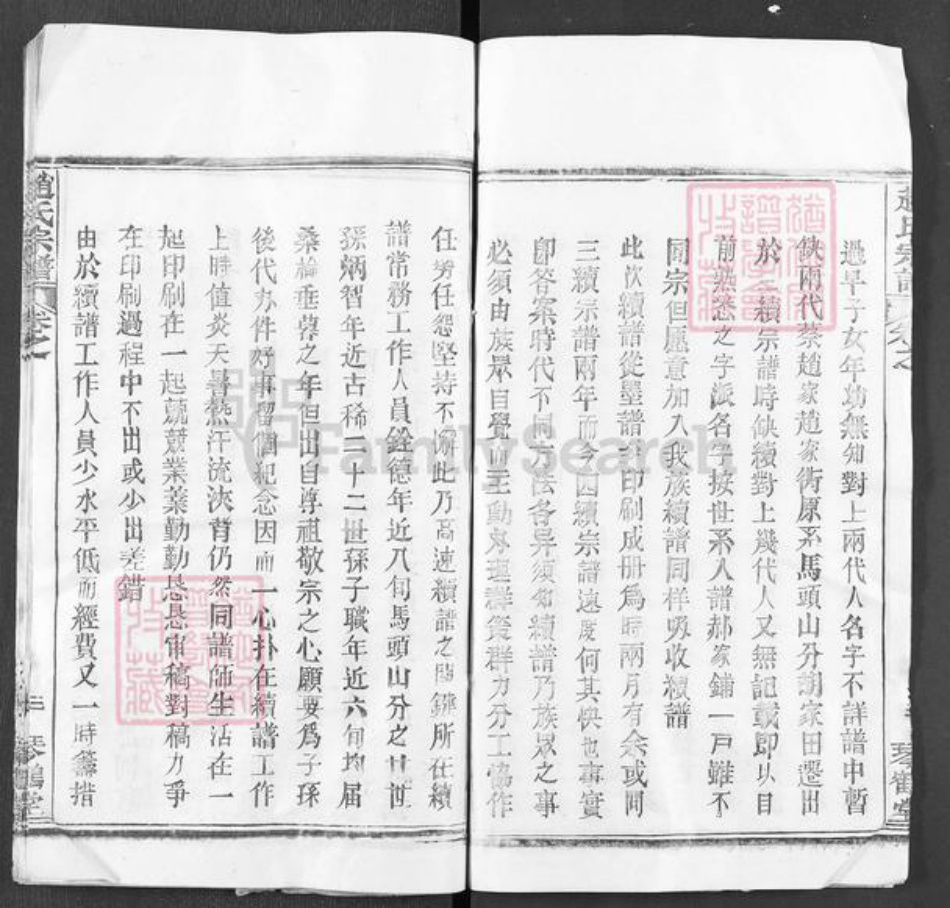 過早子女年幼無知對上兩代人名字不詳譜中暫
缺兩代蔡趙家趙家街原系馬頭山分胡家田遷出
於三續宗譜時缺續對上幾代人又無記載即以目
前熟悉之字派名字按世系入譜郝家鋪一戶雖不
同宗但愿意加入我族續譜同樣吸收續譜
此次續譜從墨譜 印刷成册爲時兩月有余或問
三續宗譜兩年而今四續宗譜速度何其快也事實
即答案時代不同方法各异須知續譜乃族眾之事
必須由族眾自覺而主動办理群策群力分工協作
任勞任怨堅持不懈此乃高速續譜之關鍵所在續
譜常務工作人員銓德年近八旬馬頭山分之廿世
孫炳智年近古稀二十二世孫子職年近六旬均届
桑榆垂暮之年但出自尊祖敬宗之心願要爲子孫
後代办件好事留個紀念因而一心扑在續譜工作
上時值炎天暑熱汗流浹背仍然同譜師生活在一
起印刷在一起兢兢業業勤勤恳恳审稿對稿力爭
在印刷過程中不出或少出差錯
由於續譜工作人員少水平低而經費又一時籌措
趙氏宗譜
卷之
琴鶴堂
趙氏宗譜
卷之
琴鶴堂
FamilySearch